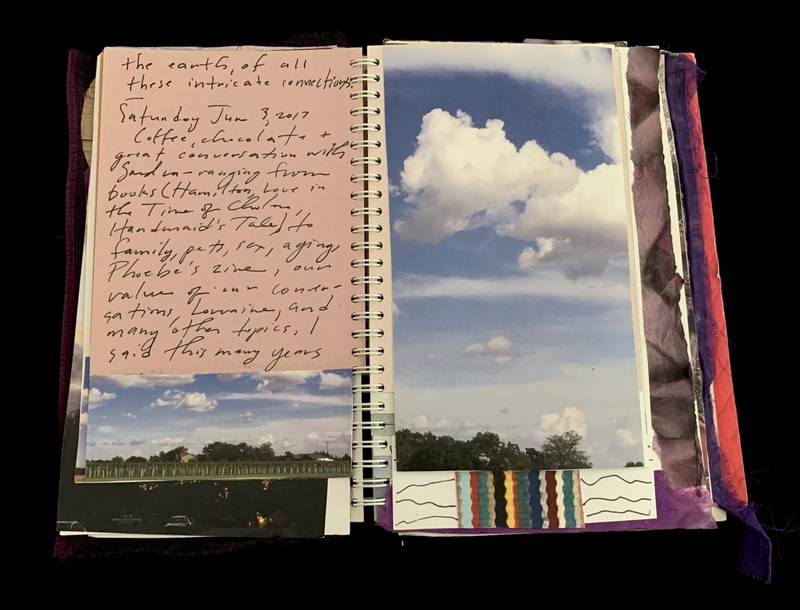 the earth, of all
these intricate connections.
Saturday June 3, 2017
Coffee, chocolate +
great conversation with
Sandra - ranging from
books (Hamilton, Love in
the Time of Cholera,
Handmaid's Tale) to
family, pets, sex, aging,
Phoebe's zine, our
value of our conver-
sations, Lorraine, and
many other topics. I
said this many years